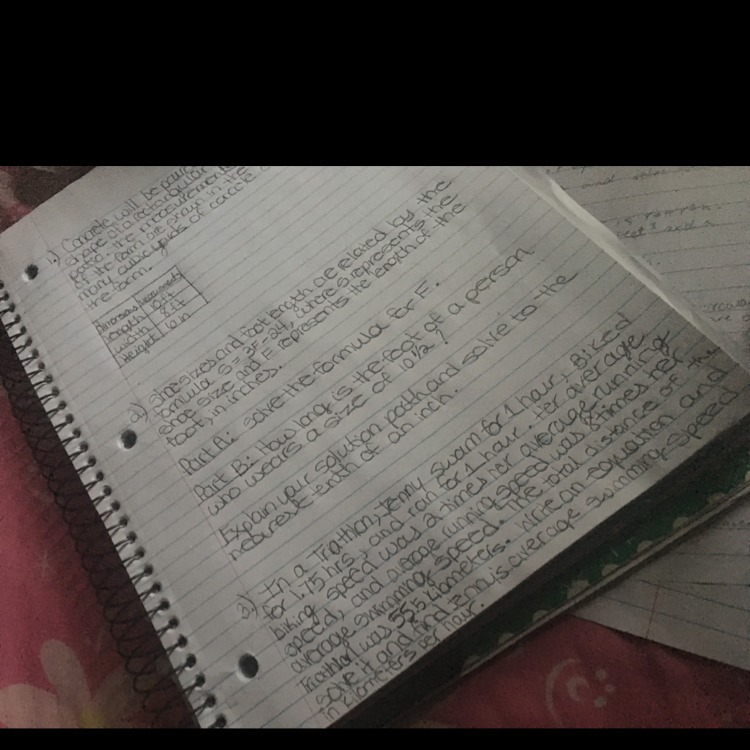 1.) Concrete will be poured
shape of a rectangular
the measurements
of the form are shown in the
many cubic yards of concrete
the form.
Dimensions
Length 10 ft
Width 8 ft
Height 6 in
2) Shoe sizes and foot length are related by the
formula S = 3F - 24, where S represents the
shoe size and F represents the length of the
foot, in inches.
Part A: Solve the formula for F.
Part B: How long is the foot of a person
who wears a size of 10 1/2?
Explain your solution path and solve to the
nearest tenth of an inch.
3) In a Triathlon, Jenny swam for 1 hour, Biked
for 1.75 hrs, and ran for 1 hour. Her average
biking speed was 2 times her average running
speed, and average running speed was 8 times her
average swimming speed. The total distance of the
Triathlon was 55.5 kilometers. Write an equation and
solve it and find Jenni's average swimming speed
in kilometers per hour.